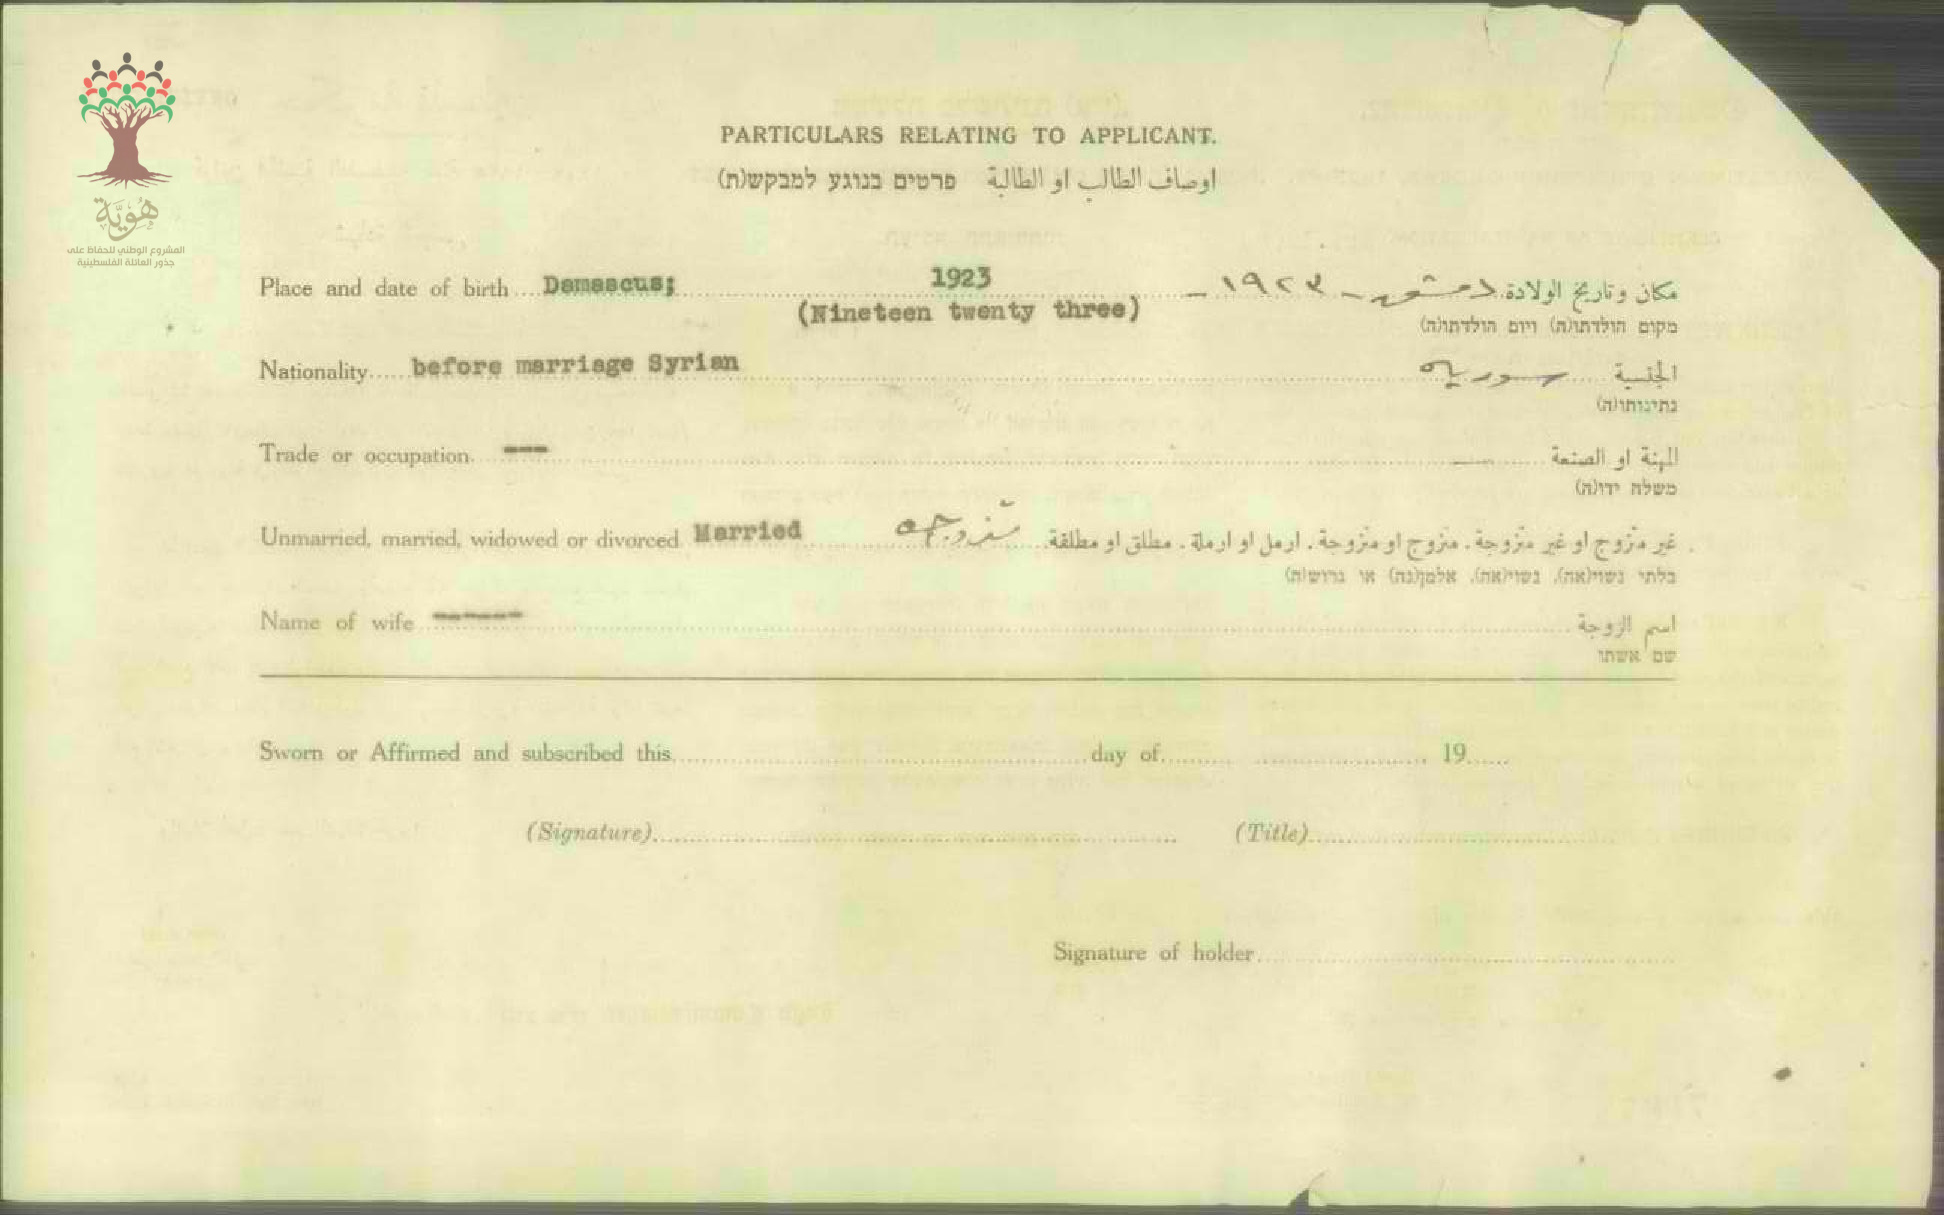 هُوِيَّة
المشروع الوطني للحفاظ على
جذور العائلة الفلسطينية
PARTICULARS RELATING TO APPLICANT.
פרטים בנוגע למבקש(ת) اوصاف الطالب او الطالبة
Place and date of birth Damascus; 1923 مكان وتاريخ الولادة دمشق - ١٩٢٣ -
(Nineteen twenty three) מקום הולדתו(ה) ויום הולדתו(ה)
Nationality before marriage Syrian الجنسية سوريه
נתינותו(ה)
Trade or occupation --- المهنة او الصنعة —
משלח ידו(ה)
Unmarried, married, widowed or divorced Married متزوجه غير متزوج او غير متزوجة . متزوج او متزوجة . ارمل او ارملة . مطلق او مطلقة .
בלתי נשוי(אה), נשוי(אה), אלמן(נה) או גרוש(ה)
Name of wife ------ اسم الزوجة
שם אשתו
Sworn or Affirmed and subscribed this day of 19
(Signature) (Title)
Signature of holder